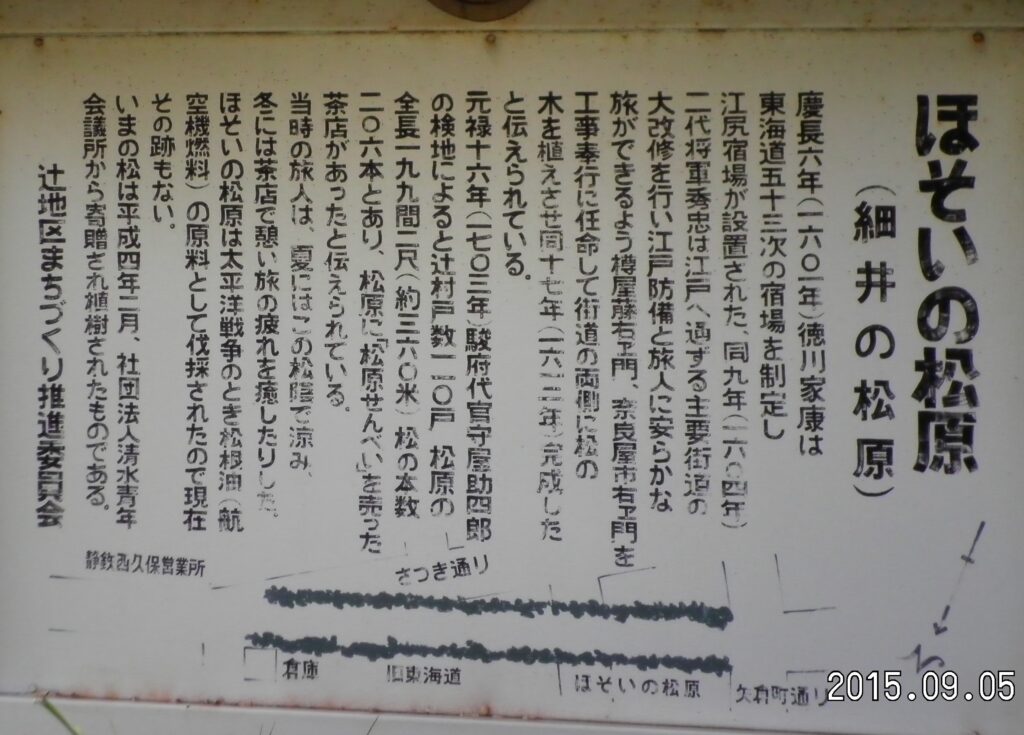 ほそいの松原
(細井の松原)
慶長六年(一六〇一年)徳川家康は
東海道五十三次の宿場を制定し
江尻宿場が設置された、同九年(一六〇四年)
二代将軍秀忠は江戸へ通ずる主要街道の
大改修を行い江戸防備と旅人に安らかな
旅ができるよう樽屋藤右ヱ門、奈良屋市右ヱ門を
工事奉行に任命して街道の両側に松の
木を植えさせ同十七年(一六一二年)完成した
と伝えられている。
元禄十六年(一七〇三年)駿府代官守屋助四郎
の検地によると辻村戸数一一〇戸 松原の
全長一九九間二尺(約三六〇米)松の本数
二〇六本とあり、松原に「松原せんべい」を売った
茶店があったと伝えられている。
当時の旅人は、夏にはこの松陰で涼み、
冬には茶店で憩い旅の疲れを癒したりした。
ほそいの松原は太平洋戦争のとき松根油(航
空機燃料)の原料として伐採されたので現在
その跡もない。
いまの松は平成四年二月、社団法人清水青年
会議所から寄贈され植樹されたものである。
辻地区まちづくり推進委員会
静鉄西久保営業所
さつき通り
倉庫
旧東海道
ほそいの松原
矢倉町通り
2015.09.05